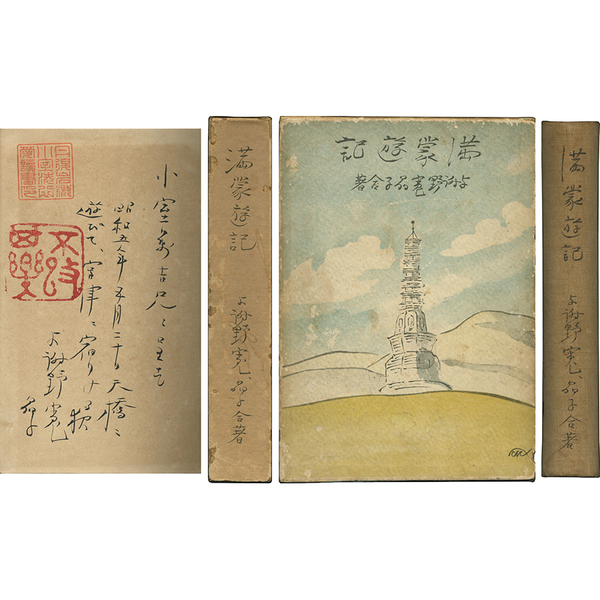 小室万吉兄に呈す
昭和五年五月二十日天橋に
遊びて、宮津に宿りける夜
与謝野寛
晶子
満蒙遊記
与謝野寛、晶子合著
満蒙遊記
与謝野寛晶子合著
満蒙遊記
与謝野寛、晶子合著